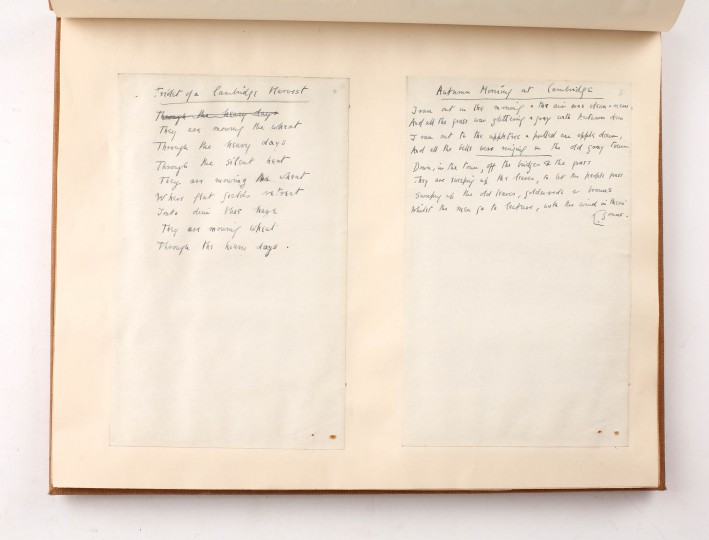 Triolet of a Cambridge Harvest
Through the heavy days
They are mowing the wheat
Through the heavy days
Through the silent heat
They are mowing the wheat
Where flat fields retreat
Into dim blue haze
They are mowing wheat
Through the heavy days.
Autumn Morning at Cambridge
I ran out in the morning & the air was clean & new,
And all the grass was glittering & grey with Autumn dew
I ran out to the appletree & pulled an apple down,
And all the bells were ringing in the old grey town
Down, in the town, off the bridges & the grass
They are sweeping up the leaves, to let the people pass
Sweeping up the old leaves, golden reds & browns
Whilst the men go to lecture, with the wind in their
gowns.